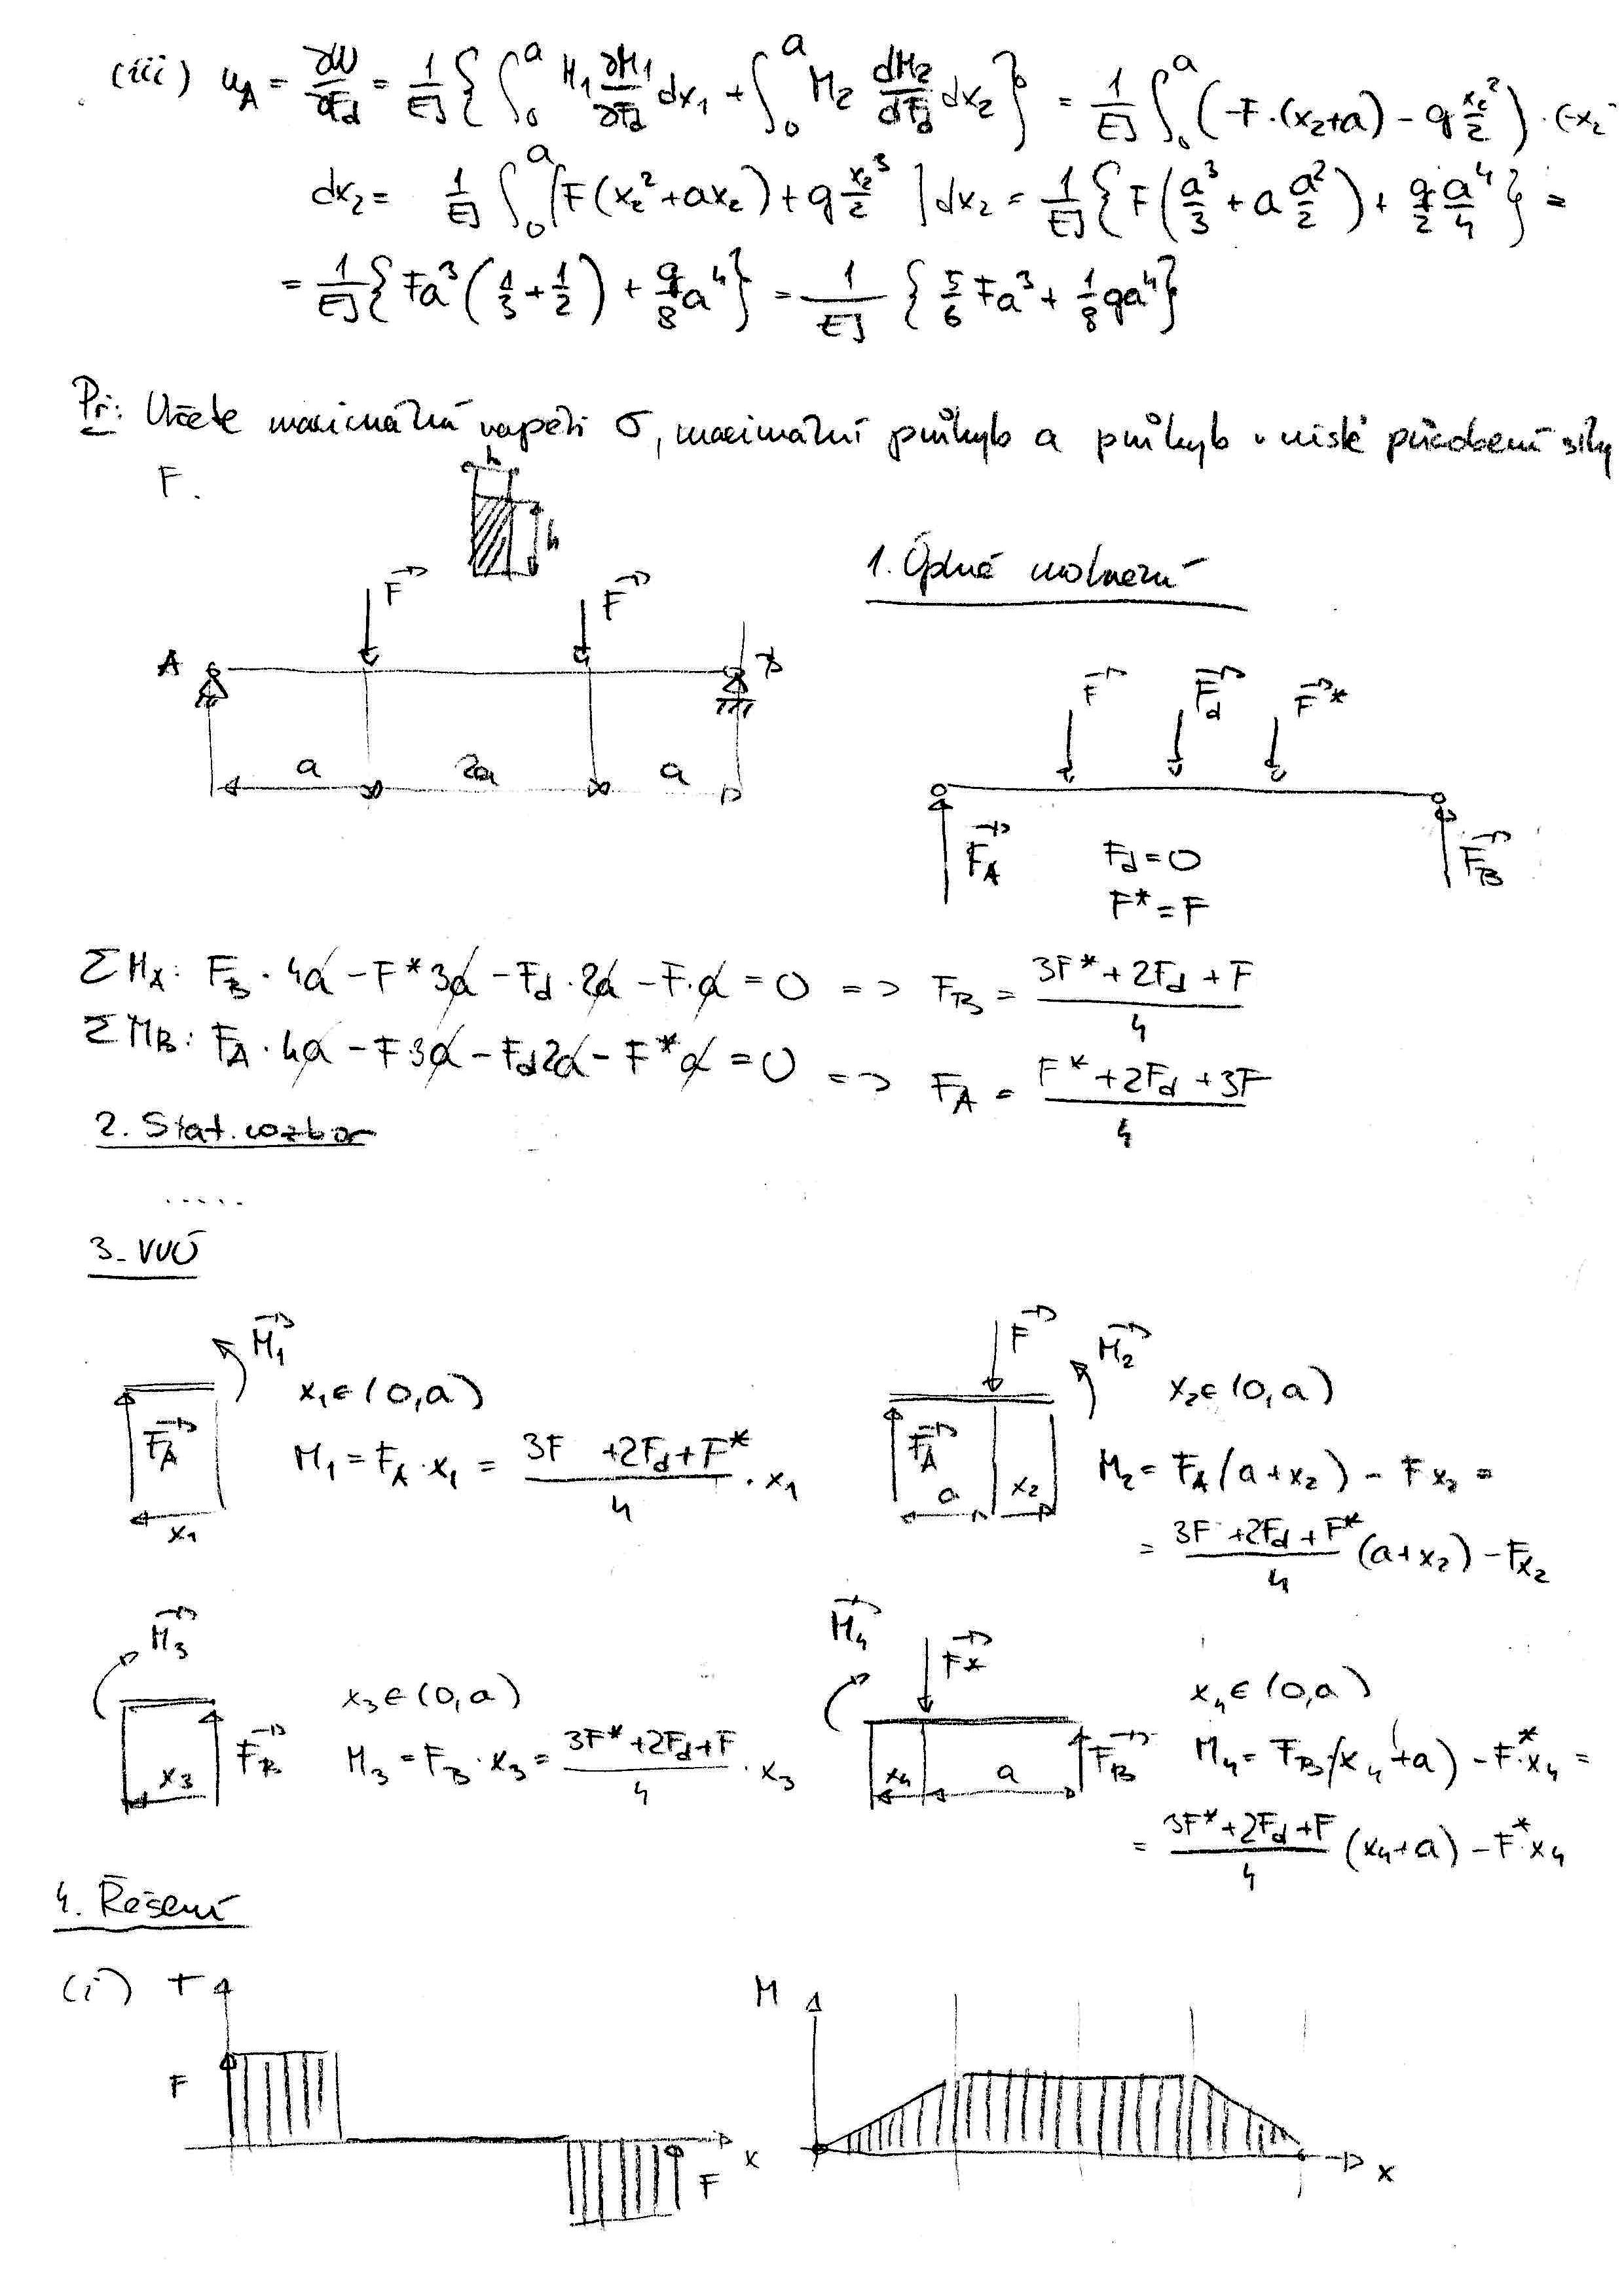 (iii) u_A = ∂W/∂F_d = 1/EJ { ∫_0^a M_1 ∂M_1/∂F_d dx_1 + ∫_0^a M_2 dM_2/dF_d dx_2 } = 1/EJ ∫_0^a (-F·(x_2+a) - q x_2^2/2) · (-x_2
dx_2 = 1/EJ ∫_0^a [F(x_2^2 + ax_2) + q x_2^3/2] dx_2 = 1/EJ { F(a^3/3 + a a^2/2) + q/2 a^4/4 } =
= 1/EJ { Fa^3 (1/3 + 1/2) + q/8 a^4 } = 1/EJ { 5/6 Fa^3 + 1/8 qa^4 }
Př: Určete maximální napětí σ, maximální průhyb a průhyb v místě působení síly
F.
h
h
1. Úplné uvolnění
F F
A B
a 2a a
F F_d F*
F_A F_B
F_d = 0
F* = F
ΣM_A: F_B · 4a - F* 3a - F_d · 2a - F·a = 0 => F_B = (3F* + 2F_d + F)/4
ΣM_B: F_A · 4a - F 3a - F_d 2a - F* a = 0 => F_A = (F* + 2F_d + 3F)/4
2. Stat. rozbor
.....
3. VVÚ
M_1 x_1 ∈ (0,a)
F_A x_1
M_1 = F_A · x_1 = (3F + 2F_d + F*)/4 · x_1
F M_2 x_2 ∈ (0,a)
F_A a x_2
M_2 = F_A (a + x_2) - F x_2 =
= (3F + 2F_d + F*)/4 (a + x_2) - F x_2
M_3 x_3 ∈ (0,a)
x_3 F_B
M_3 = F_B · x_3 = (3F* + 2F_d + F)/4 · x_3
M_4 F* x_4 ∈ (0,a)
x_4 a F_B
M_4 = F_B (x_4 + a) - F*·x_4 =
= (3F* + 2F_d + F)/4 (x_4 + a) - F*·x_4
4. Řešení
(i) T F x F
M x